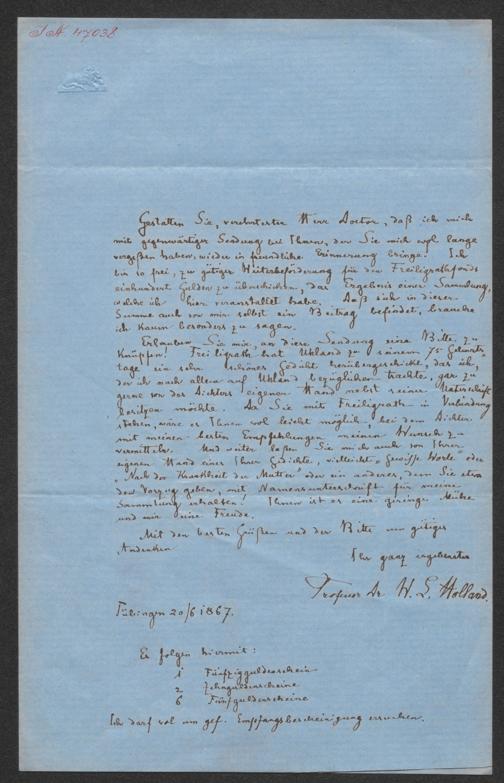 J.N. 47038
Gestatten Sie, verehrtester Herr Doctor, daß ich mich
mit gegenwärtiger Sendung bei Ihnen, der Sie mich wol lange
vergeßen haben, wieder in freundliche Erinnerung bringe. Ich
bin so frei, zu gütiger Weiterbeförderung für den Freiligrathfonds
einhundert Gulden zu überschicken, das Ergebnis einer Sammlung,
welche ich hier veranstaltet habe. Daß sich in dieser
Summe auch von mir selbst ein Beitrag befindet, brauche
ich kaum besonders zu sagen.
Erlauben Sie mir, an diese Sendung eine Bitte zu
knüpfen! Freiligrath hat Uhland zu seinem 75 Geburts-
tage ein sehr schönes Gedicht herübergeschickt, das ich,
der ich nach allem auf Uhland bezüglichen trachte, gar zu
gerne von des Dichters eigenen Hand nebst seiner Unterschrift
besitzen möchte. Da Sie mit Freiligrath in Verbindung
stehen, wäre es Ihnen wol leicht möglich, bei dem Dichter
mit meinen besten Empfehlungen meinen Wunsch zu
vermitteln. Und weiter laßen Sie mich auch von Ihrer
eigenen Hand eines Ihrer Gedichte, vielleicht „Gewisse Worte" oder
„Nach der Krankheit der Mutter" oder ein anderes, dem Sie etwa
den Vorzug geben, mit Namensunterschrift für meine
Sammlung erhalten! Ihnen ist es eine geringe Mühe
und mir eine Freude.
Mit den besten Grüßen und der Bitte um gütiges
Andenken
Ihr ganz ergebenster
Professor Dr. W. L. Holland.
Tübingen 20/6 1867.
Es folgen hiermit:
1 Fünfzigguldenschein
2 Zehnguldenscheine
6 Fünfguldenscheine
Ich darf wol um gef. Empfangsbescheinigung ersuchen.